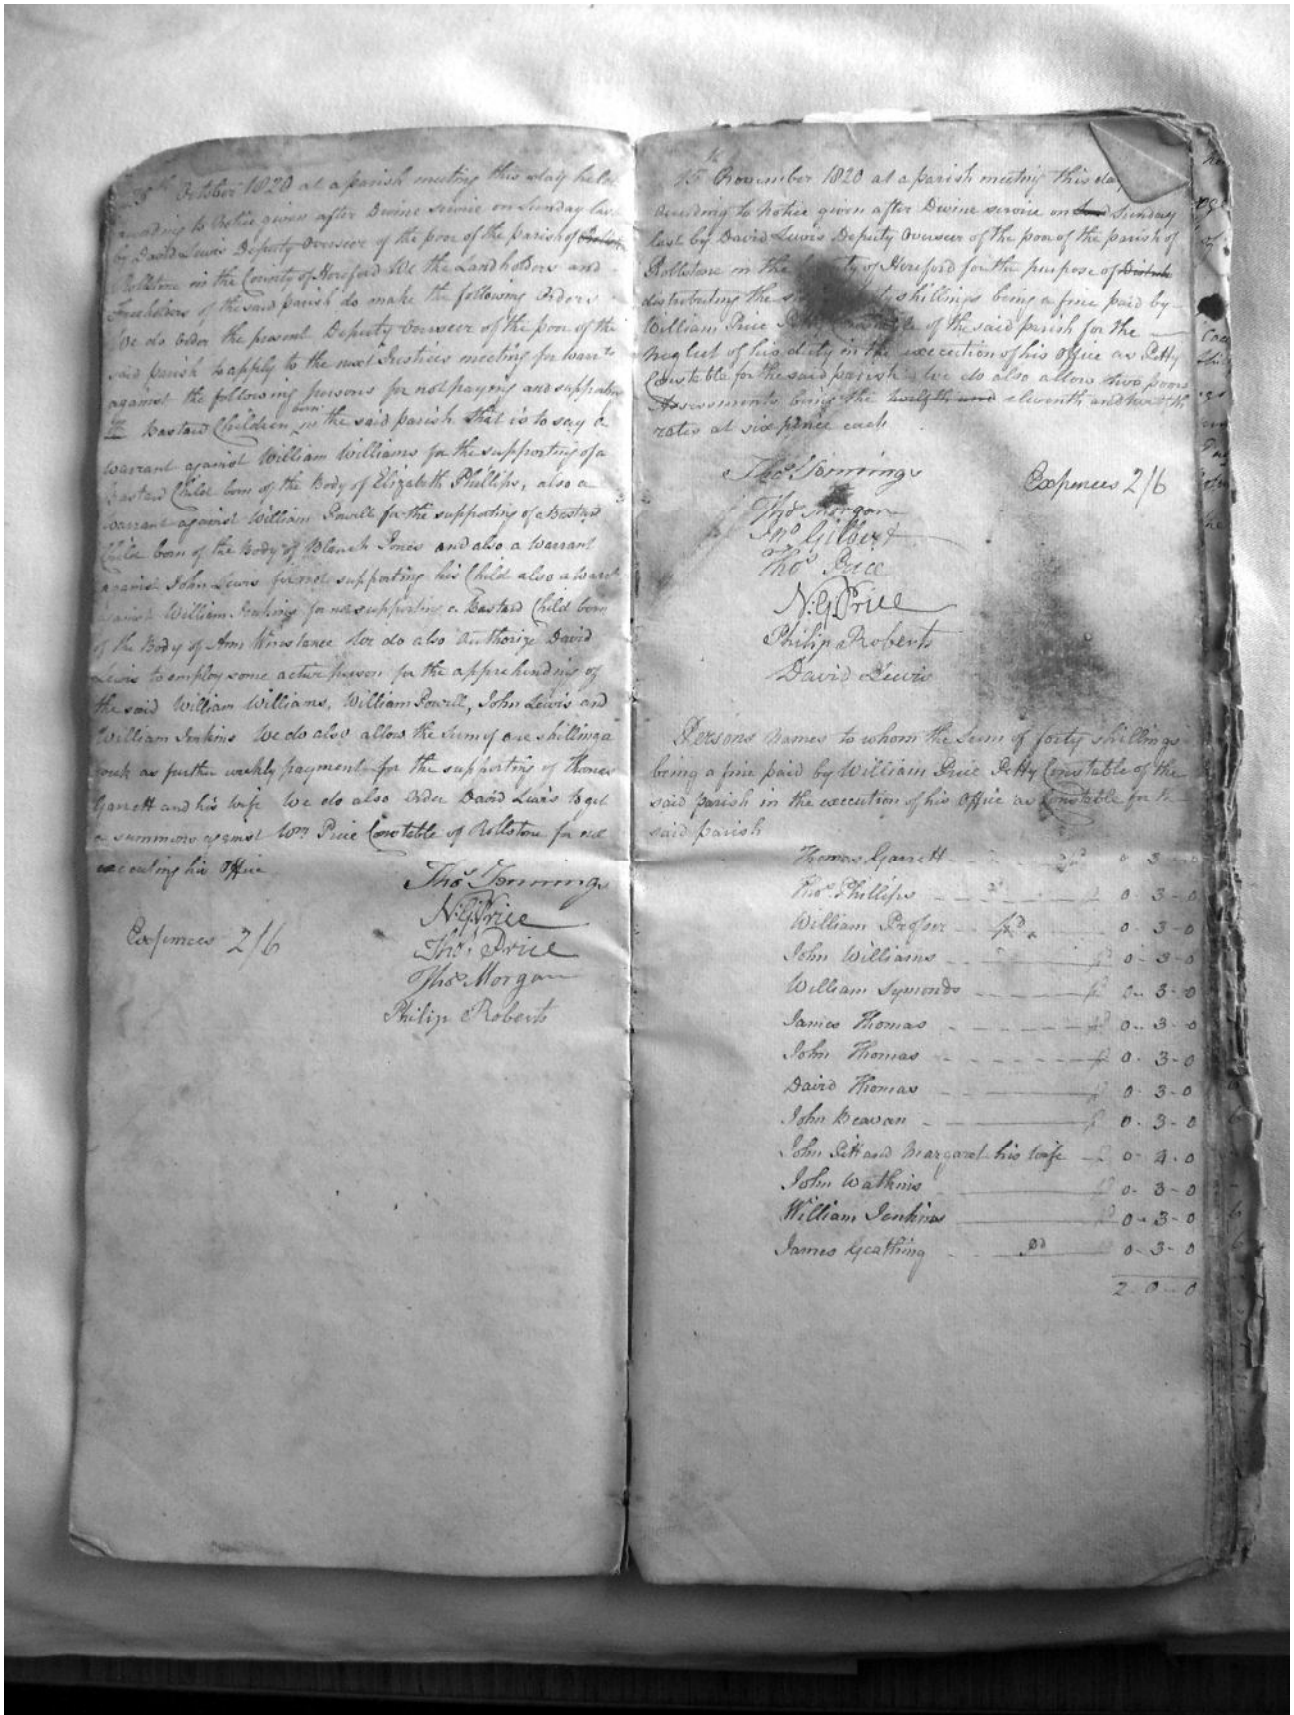 5th October 1820 at a parish meeting this day held
according to Notice given after Divine service on Sunday last
by David Lewis Deputy Overseer of the poor of the parish of
Rollstone in the County of Hereford We the Landholders and
Freeholders of the said parish do make the following Orders
We do Order the present Deputy Overseer of the poor of the
said parish to apply to the next Justices meeting for warrts
against the following persons for not paying and supporting
Bastard Children born in the said parish that is to say a
warrant against William Williams for the supporting of a
Bastard Child born of the Body of Elizabeth Phillips, also a
warrant against William Powell for the supporting of a Bastard
Child born of the Body of Blanch Jones and also a warrant
against John Lewis for not supporting his Child also a warrt
against William Jenkins for not supporting a Bastard Child born
of the Body of Ann Winstance We do also Authorize David
Lewis to employ some active person for the apprehending of
the said William Williams, William Powell, John Lewis and
William Jenkins We do also allow the Sum of one shilling a
week as further weekly payment for the supporting of Thomas
Garrett and his wife We do also Order David Lewis to get
a summons against Wm Price Constable of Rollstone for not
executing his Office
Thos Jennings
N: G: Price
Expences 2/6
Thos Price
Thos Morgan
Philip Roberts
15th November 1820 at a parish meeting this day
according to Notice given after Divine service on Sunday
last by David Lewis Deputy Overseer of the poor of the parish of
Rollstone in the County of Hereford for the purpose of
distributing the shillings being a fine paid by
William Price Petty Constable of the said parish for the
neglect of his duty in the execution of his office as Petty
Constable for the said parish We do also allow two poors
Assessments being the twelfth and eleventh and twelfth
rates at six pence each
Thos Jennings
Expences 2/6
Thos Morgan
Jno Gilbert
Thos Price
N: G: Price
Philip Roberts
David Lewis
Persons Names to whom the Sum of forty shillings
being a fine paid by William Price Petty Constable of the
said parish in the execution of his Office as Constable for the
said parish
Thomas Garrett pd 0 - 3 - 0
Thos Phillips 0 - 3 - 0
William Prosser pd 0 - 3 - 0
John Williams pd 0 - 3 - 0
William Symonds pd 0 - 3 - 0
James Thomas pd 0 - 3 - 0
John Thomas pd 0 - 3 - 0
David Thomas pd 0 - 3 - 0
John Beavan pd 0 - 3 - 0
John Pitt and Margaret his wife 0 - 4 - 0
John Watkins pd 0 - 3 - 0
William Jenkins pd 0 - 3 - 0
James Geathing pd 0 - 3 - 0
2 - 0 - 0